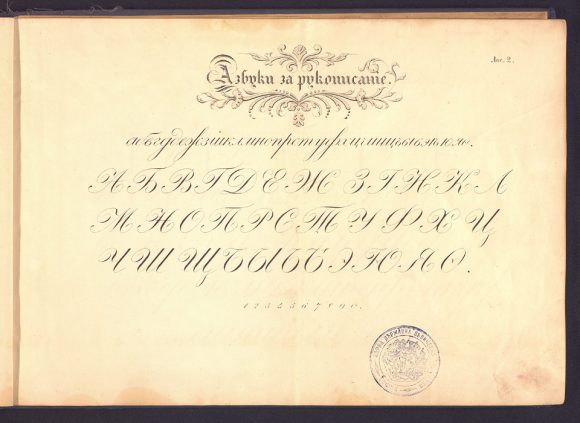 Лис. 2.
Азбуки за рукописание.
абвгдежзіиклмнопрстуфхцчшщъыьѣэюяѳ.
А Б В Г Д Е Ж З І И К Л
М Н О П Р С Т У Ф Х Ц
Ч Ш Щ Ъ Ы Ь Ѣ Э Ю Я Ѳ.
1 2 3 4 5 6 7 8 9 0.